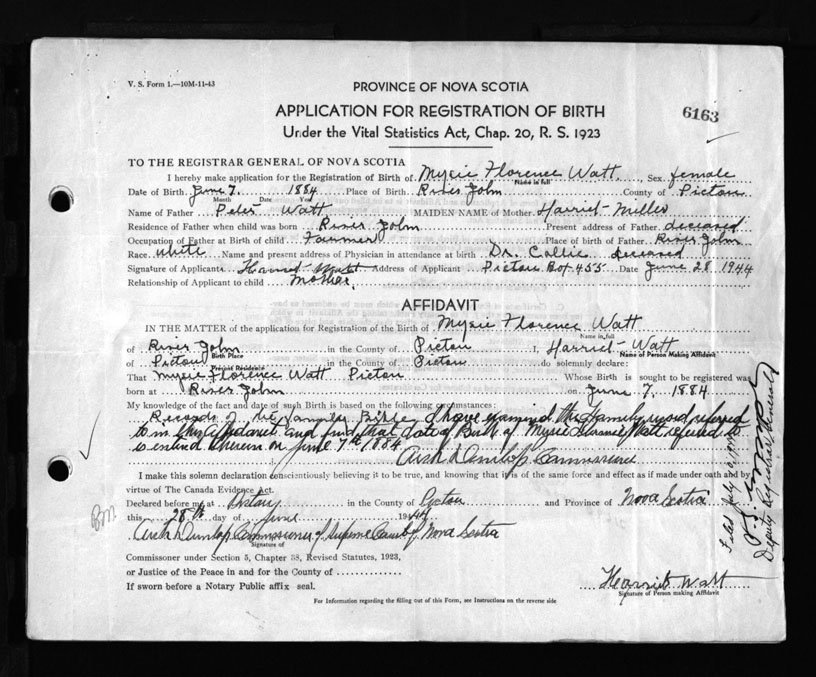 V. S. Form 1.—10M-11-43
PROVINCE OF NOVA SCOTIA
APPLICATION FOR REGISTRATION OF BIRTH
6163
Under the Vital Statistics Act, Chap. 20, R. S. 1923
TO THE REGISTRAR GENERAL OF NOVA SCOTIA
I hereby make application for the Registration of Birth of Mysie Florence Watt, Sex female
Name in full
Date of Birth June 7. 1884 Place of Birth River John County of Pictou
Month Date Year
Name of Father Peter Watt MAIDEN NAME of Mother Harriet Miller
Residence of Father when child was born River John Present address of Father deceased
Occupation of Father at Birth of child Farmer Place of birth of Father River John
Race white Name and present address of Physician in attendance at birth Dr. Collie deceased
Signature of Applicant Harriet Watt Address of Applicant Pictou Box 455 Date June 28 1944
Relationship of Applicant to child Mother.
AFFIDAVIT
IN THE MATTER of the application for Registration of the Birth of Mysie Florence Watt
Name in full
of River John in the County of Pictou I, Harriet Watt
Birth Place Name of Person Making Affidavit
of Pictou in the County of Pictou do solemnly declare:
Present Residence
That Mysie Florence Watt Pictou Whose Birth is sought to be registered was
born at River John on June 7, 1884
My knowledge of the fact and date of such Birth is based on the following circumstances:
Records of the Family Bible I have examined the Family record referred
to in this affidavit and find that date of Birth of Mysie Florence Watt referred to
is entered therein on June 7th 1884
Arch Dunlop Commissioner
I make this solemn declaration conscientiously believing it to be true, and knowing that it is of the same force and effect as if made under oath and by
virtue of The Canada Evidence Act.
Declared before me at Pictou in the County of Pictou and Province of Nova Scotia
this 28th day of June 1944
Arch Dunlop Commissioner of Supreme Court of Nova Scotia
Signature of
Commissioner under Section 5, Chapter 38, Revised Statutes, 1923,
or Justice of the Peace in and for the County of
If sworn before a Notary Public affix seal.
Harriet Watt
Signature of Person making Affidavit
For Information regarding the filling out of this Form, see Instructions on the reverse side
BM
Filed July
Deputy Registrar General